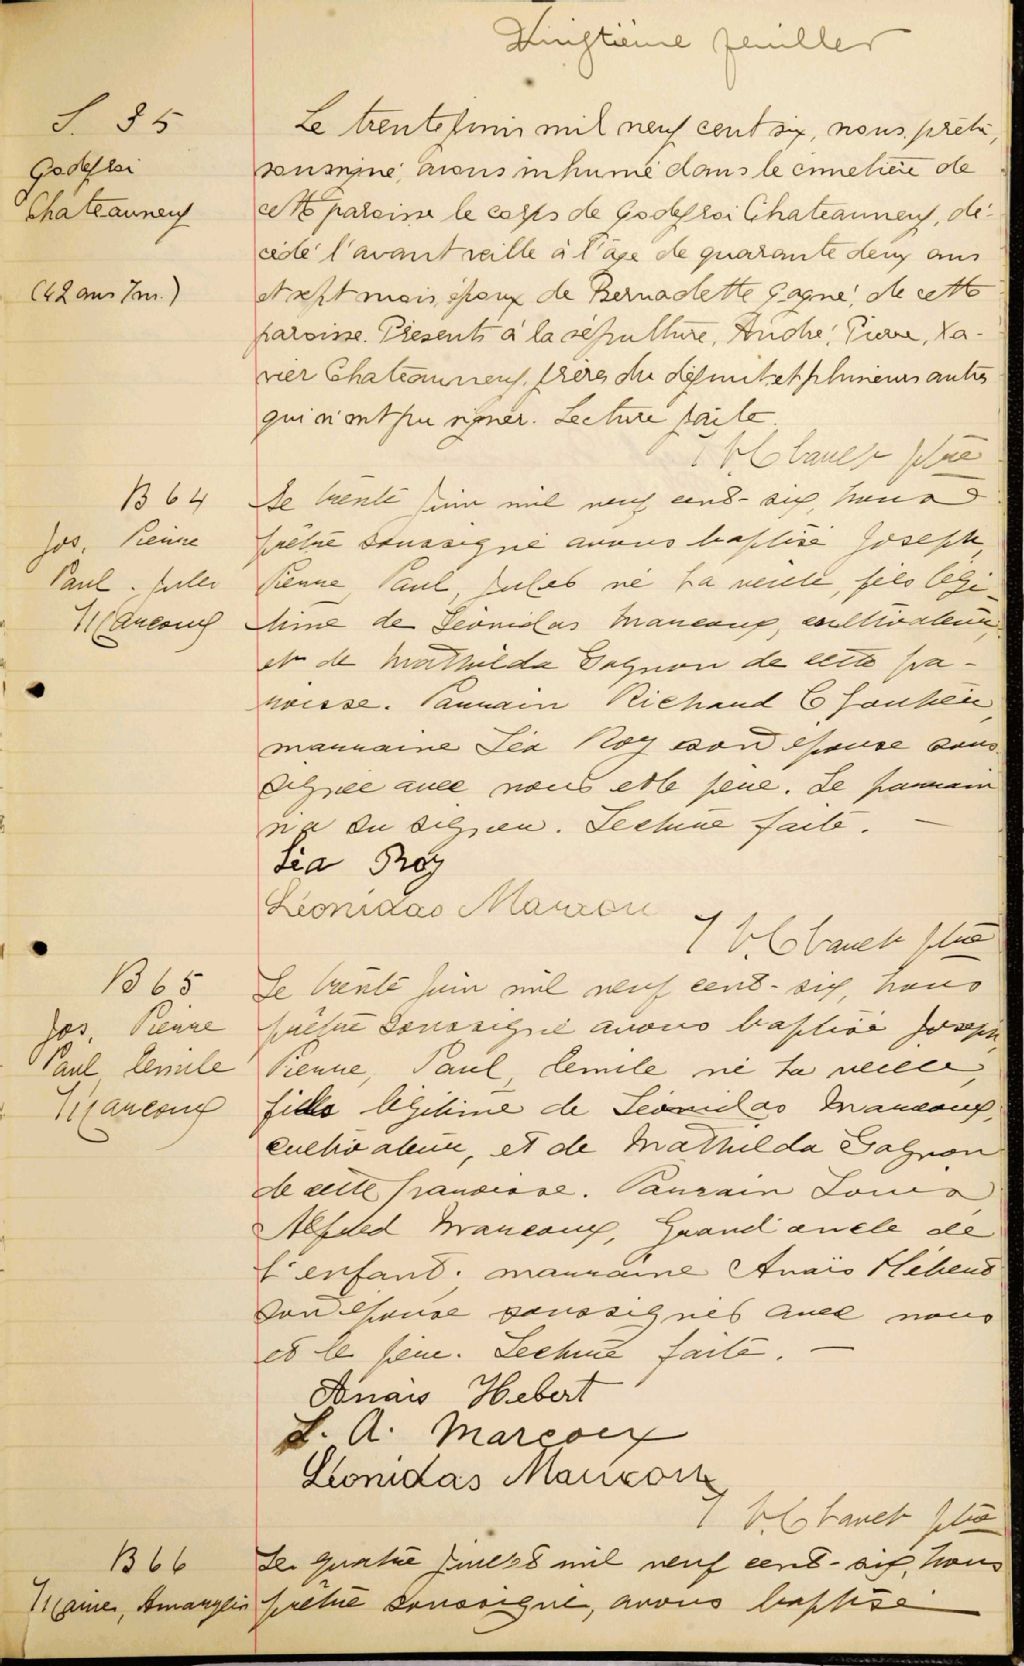 Vingtième feuillet
S. 35
Godefroi
Chateauneuf
(42 ans 7m.)
Le trente juin mil neuf cent six, nous, prêtre,
soussigné, avons inhumé dans le cimetière de
cette paroisse le corps de Godefroi Chateauneuf, dé-
cédé l'avant veille à l'âge de quarante deux ans
et sept mois, époux de Bernadette Gagné, de cette
paroisse. Présents à la sépulture, André, Pierre, Xa-
vier Chateauneuf, frères du défunt et plusieurs autres
qui n'ont pu signer. Lecture faite.
ptre
B 64
Jos, Pierre
Paul, Jules
Marcoux
Le trente Juin mil neuf cent-six, nous
prêtre soussigné avons baptisé Joseph,
Pierre, Paul, Jules né la veille, fils légi-
time de Léonidas Marcoux, cultivateur,
et de Mathilda Gagnon de cette pa-
roisse. Parrain Richard
marraine Léa Roy son épouse sous-
signée avec nous et le père. Le parrain
n'a su signer. Lecture faite. —
Léa Roy
Léonidas Marcoux
ptre
B 65
Jos, Pierre
Paul, Emile
Marcoux
Le trente Juin mil neuf cent-six, nous
prêtre soussigné avons baptisé Joseph,
Pierre, Paul, Emile né la veille,
fils légitime de Léonidas Marcoux,
cultivateur, et de Mathilda Gagnon
de cette paroisse. Parrain Louis
Alfred Marcoux, Grand'oncle de
l'enfant; marraine Anaïs Hébert
son épouse soussignés avec nous
et le père. Lecture faite. —
Anaïs Hebert
L. A. Marcoux
Léonidas Marcoux
ptre
B 66
Marie, Amaryllis
Le quatre Juillet mil neuf cent-six, nous
prêtre soussigné, avons baptisé